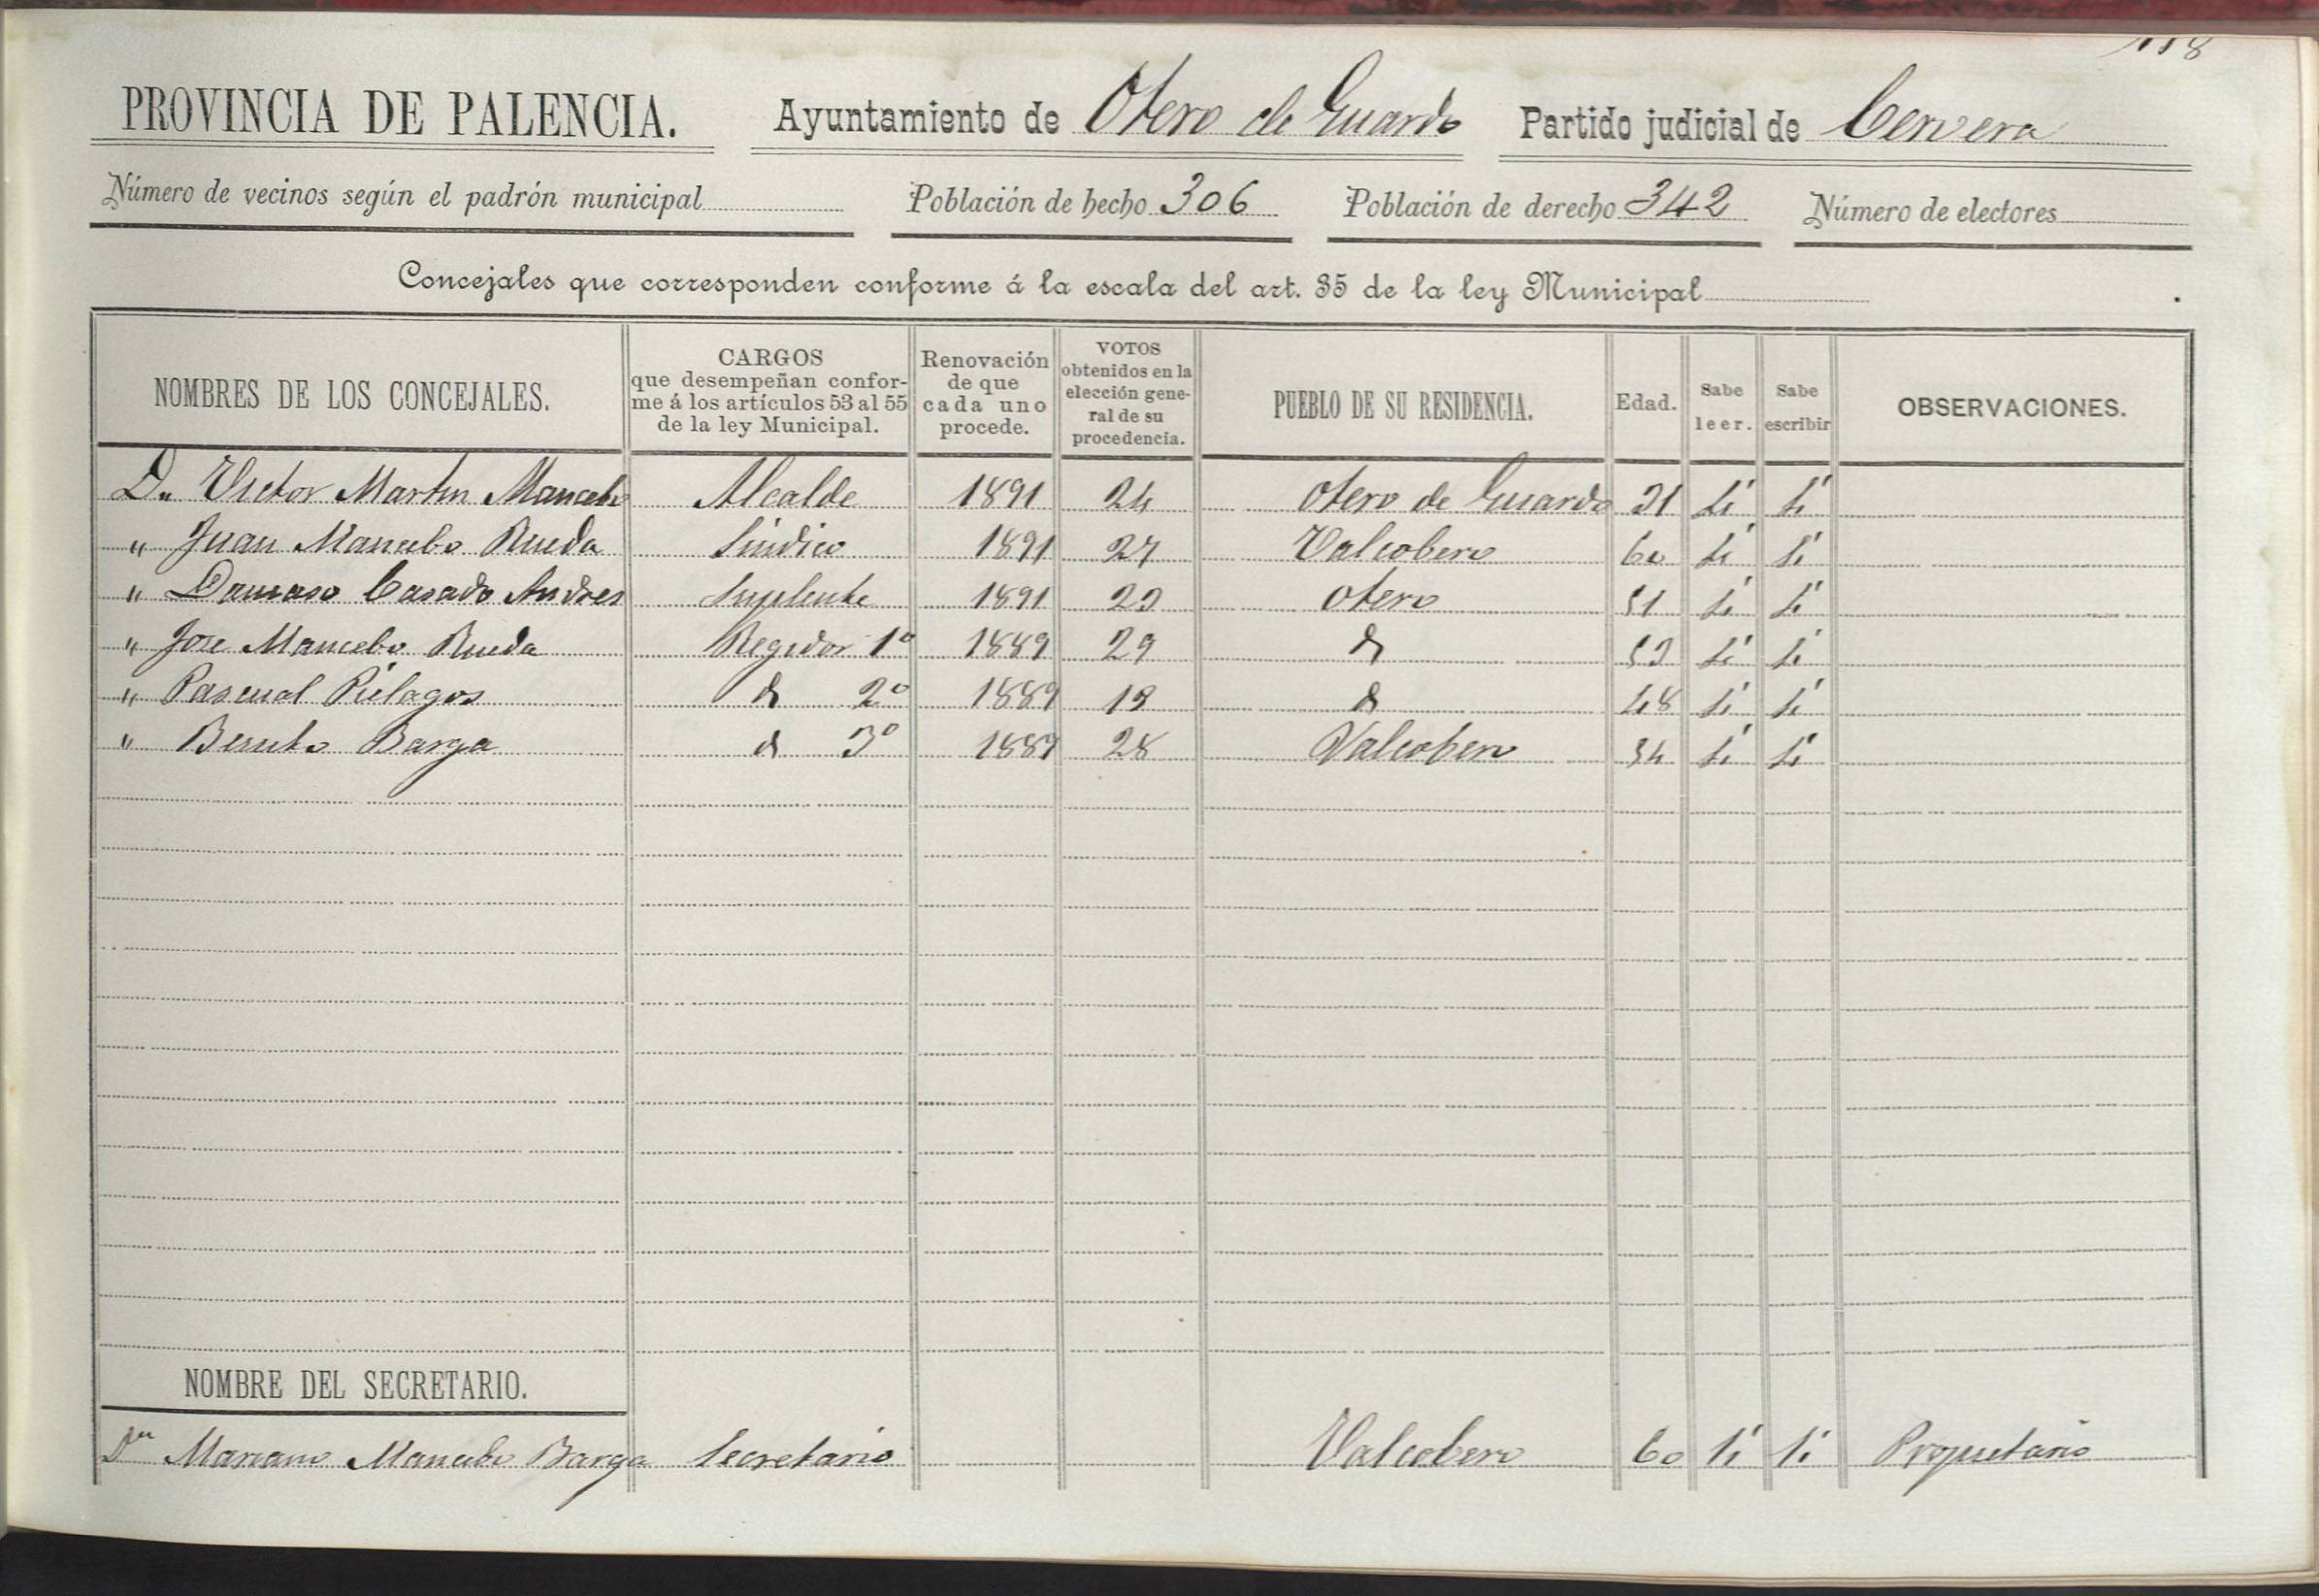 118
PROVINCIA DE PALENCIA. Ayuntamiento de Otero de Guardo Partido judicial de Cervera
Número de vecinos según el padrón municipal Población de hecho 306 Población de derecho 342 Número de electores
Concejales que corresponden conforme á la escala del art. 35 de la ley Municipal
NOMBRES DE LOS CONCEJALES. CARGOS que desempeñan conforme á los artículos 53 al 55 de la ley Municipal. Renovación de que cada uno procede. VOTOS obtenidos en la elección general de su procedencia. PUEBLO DE SU RESIDENCIA. Edad. Sabe leer. Sabe escribir OBSERVACIONES.
D. Victor Martin Mancebo Alcalde 1891 24 Otero de Guardo 31 Si Si
" Juan Mancebo Rueda Sindico 1891 27 Valcobero 60 Si Si
" Damaso Casado Andres Suplente 1891 23 Otero 51 Si Si
" Jose Mancebo Rueda Regidor 1º 1889 29 d 53 Si Si
" Pascual Pielagos d 2º 1889 19 d 48 Si Si
" Benito Barga d 3º 1889 28 Valcobero 54 Si Si
NOMBRE DEL SECRETARIO.
Dn Mariano Mancebo Barga Secretario Valcobero 60 Si Si Propietario